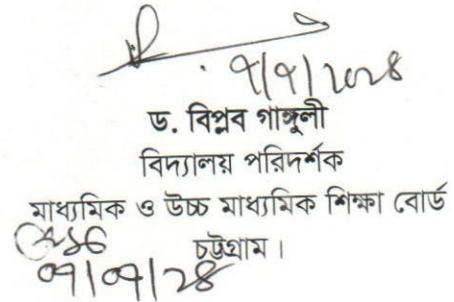 ৭/৭/২০২৪
ড. বিপ্লব গাঙ্গুলী
বিদ্যালয় পরিদর্শক
মাধ্যমিক ও উচ্চ মাধ্যমিক শিক্ষা বোর্ড
চট্টগ্রাম।
০৭/০৭/২৪